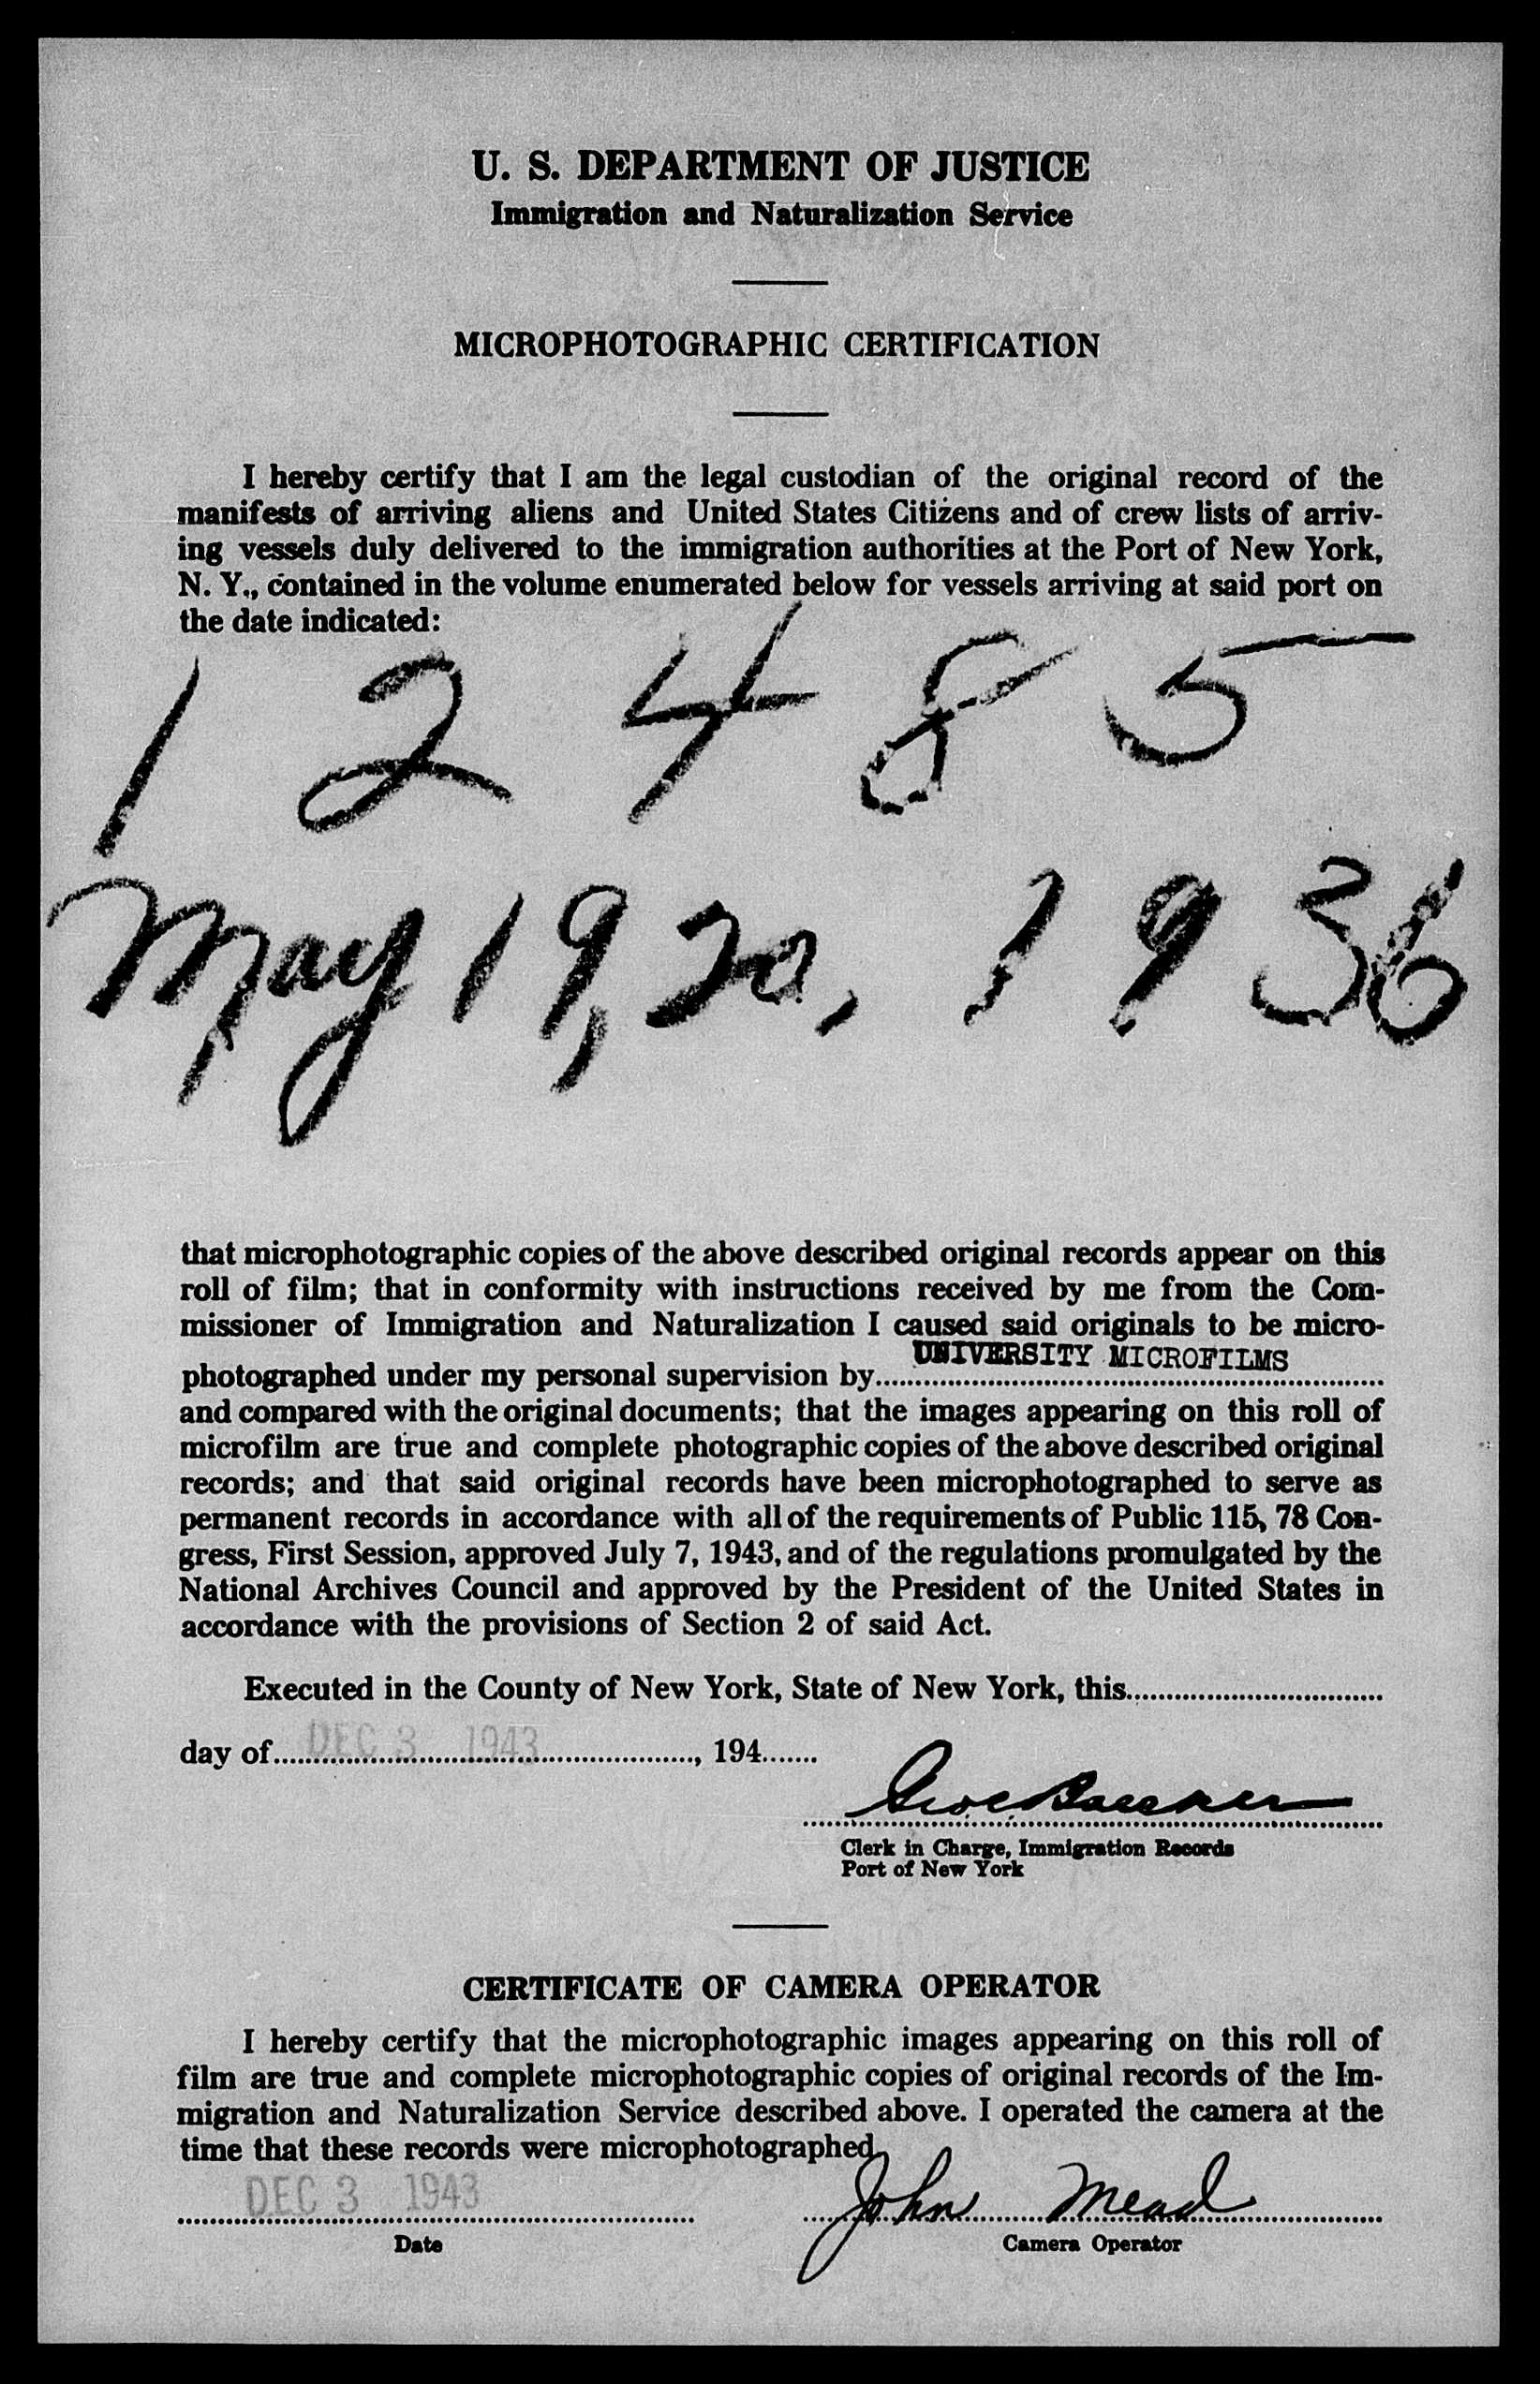 U. S. DEPARTMENT OF JUSTICE
Immigration and Naturalization Service
MICROPHOTOGRAPHIC CERTIFICATION
I hereby certify that I am the legal custodian of the original record of the
manifests of arriving aliens and United States Citizens and of crew lists of arriv-
ing vessels duly delivered to the immigration authorities at the Port of New York,
N. Y., contained in the volume enumerated below for vessels arriving at said port on
the date indicated:
1 2 4 8 5
May 19, 20, 1936
that microphotographic copies of the above described original records appear on this
roll of film; that in conformity with instructions received by me from the Com-
missioner of Immigration and Naturalization I caused said originals to be micro-
photographed under my personal supervision by UNIVERSITY MICROFILMS
and compared with the original documents; that the images appearing on this roll of
microfilm are true and complete photographic copies of the above described original
records; and that said original records have been microphotographed to serve as
permanent records in accordance with all of the requirements of Public 115, 78 Con-
gress, First Session, approved July 7, 1943, and of the regulations promulgated by the
National Archives Council and approved by the President of the United States in
accordance with the provisions of Section 2 of said Act.
Executed in the County of New York, State of New York, this
day of DEC 3 1943, 194
Clerk in Charge, Immigration Records
Port of New York
CERTIFICATE OF CAMERA OPERATOR
I hereby certify that the microphotographic images appearing on this roll of
film are true and complete microphotographic copies of original records of the Im-
migration and Naturalization Service described above. I operated the camera at the
time that these records were microphotographed.
DEC 3 1943 John Mead
Date Camera Operator